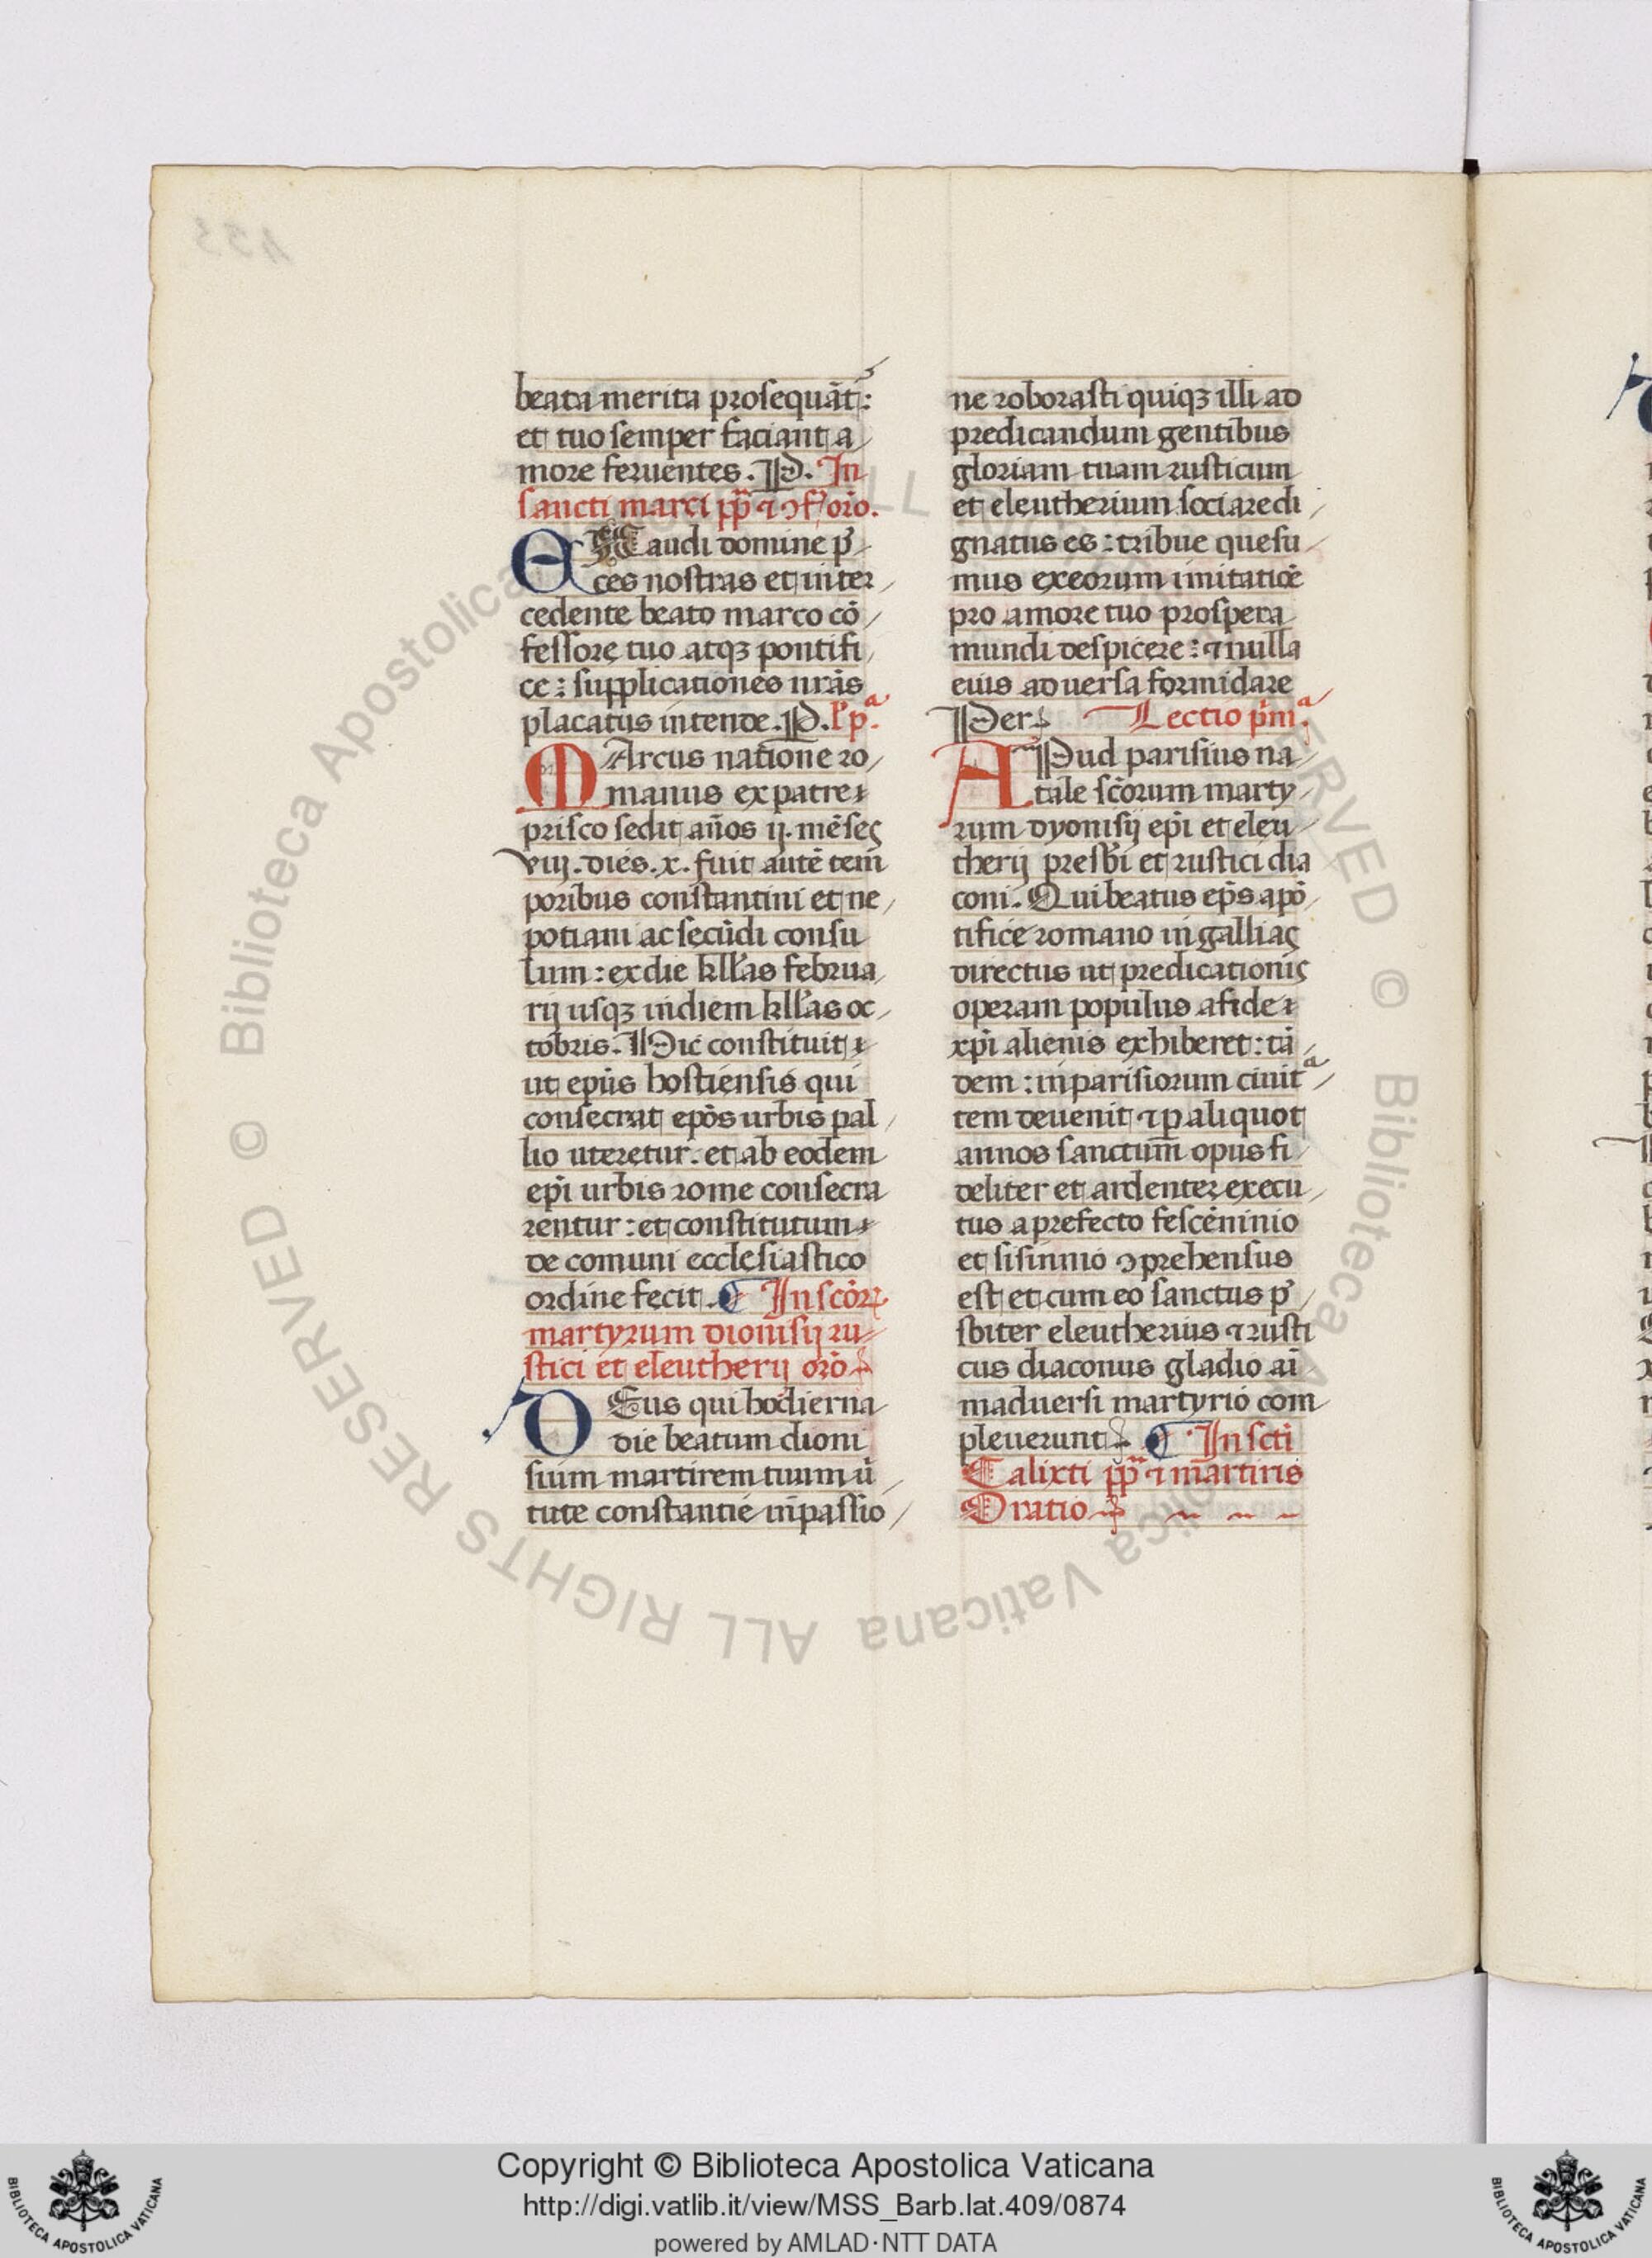 beata merita prosequãt᷒:
et tuo semper faciant a
more feruentes. P. In
sancti marci pp̄ ⁊ ↄf̉ orõ.
EXaudi domine p̉
ces nostras et inter
cedente beato marco cõ
fessore tuo atqꝫ pontifi
ce: supplicationes nr̃as
placatus intende. P. l̉ pᵃ.
MArcus natione ro
manus ex patre
prisco sedit an̄os ij. mẽses
viij. dies. x. fuit autẽ tem̄
poribus constantini et ne
potiani ac secũdi consu
lum: ex die kll̃as februa
rij usqꝫ in diem kll̃as oc
tobris. Hic constituit
ut ep̃us hostiensis qui
consecrat ep̃os urbis pal
lio uteretur. et ab eodem
ep̃i urbis rome consecra
rentur: et constitutum
de comuni ecclesiastico
ordine fecit. In sc̃oꝝ
martyrum dionisij ru
stici et eleutherij orõ
DEus qui hodierna
die beatum dioni
sium martirem tuum ũ
tute constantie in passio
ne roborasti quiqꝫ illi ad
predicandum gentibus
gloriam tuam rusticum
et eleutherium sociare di
gnatus es: tribue quesu
mus ex eorum imitatiõe
pro amore tuo prospera
mundi despicere: ⁊ nulla
eius aduersa formidare
Per. Lectio pm̉ᵃ.
APud parisius na
tale sc̃orum marty
rum dyonisij ep̃i et eleu
therij presb̃i et rustici dia
coni. Qui beatus ep̃s a põ
tifice romano in gallias
directus ut predicationis
operam populus a fide
xp̃i alienis exhiberet: tã
dem: in parisiorum ciuitᵃ
tem deuenit ⁊ ꝑ aliquot
annos sanctum̄ opus fi
deliter et ardenter execu
tus a prefecto fescẽninio
et sisinnio ↄprehensus
est et cum eo sanctus p̉
sbiter eleutherius ⁊ rusti
cus diaconus gladio aĩ
maduersi martyrio com
pleuerunt. In sc̃ti
Calixti pp̄ ⁊ martiris
Oratio
Copyright © Biblioteca Apostolica Vaticana
http://digi.vatlib.it/view/MSS_Barb.lat.409/0874
powered by AMLAD·NTT DATA